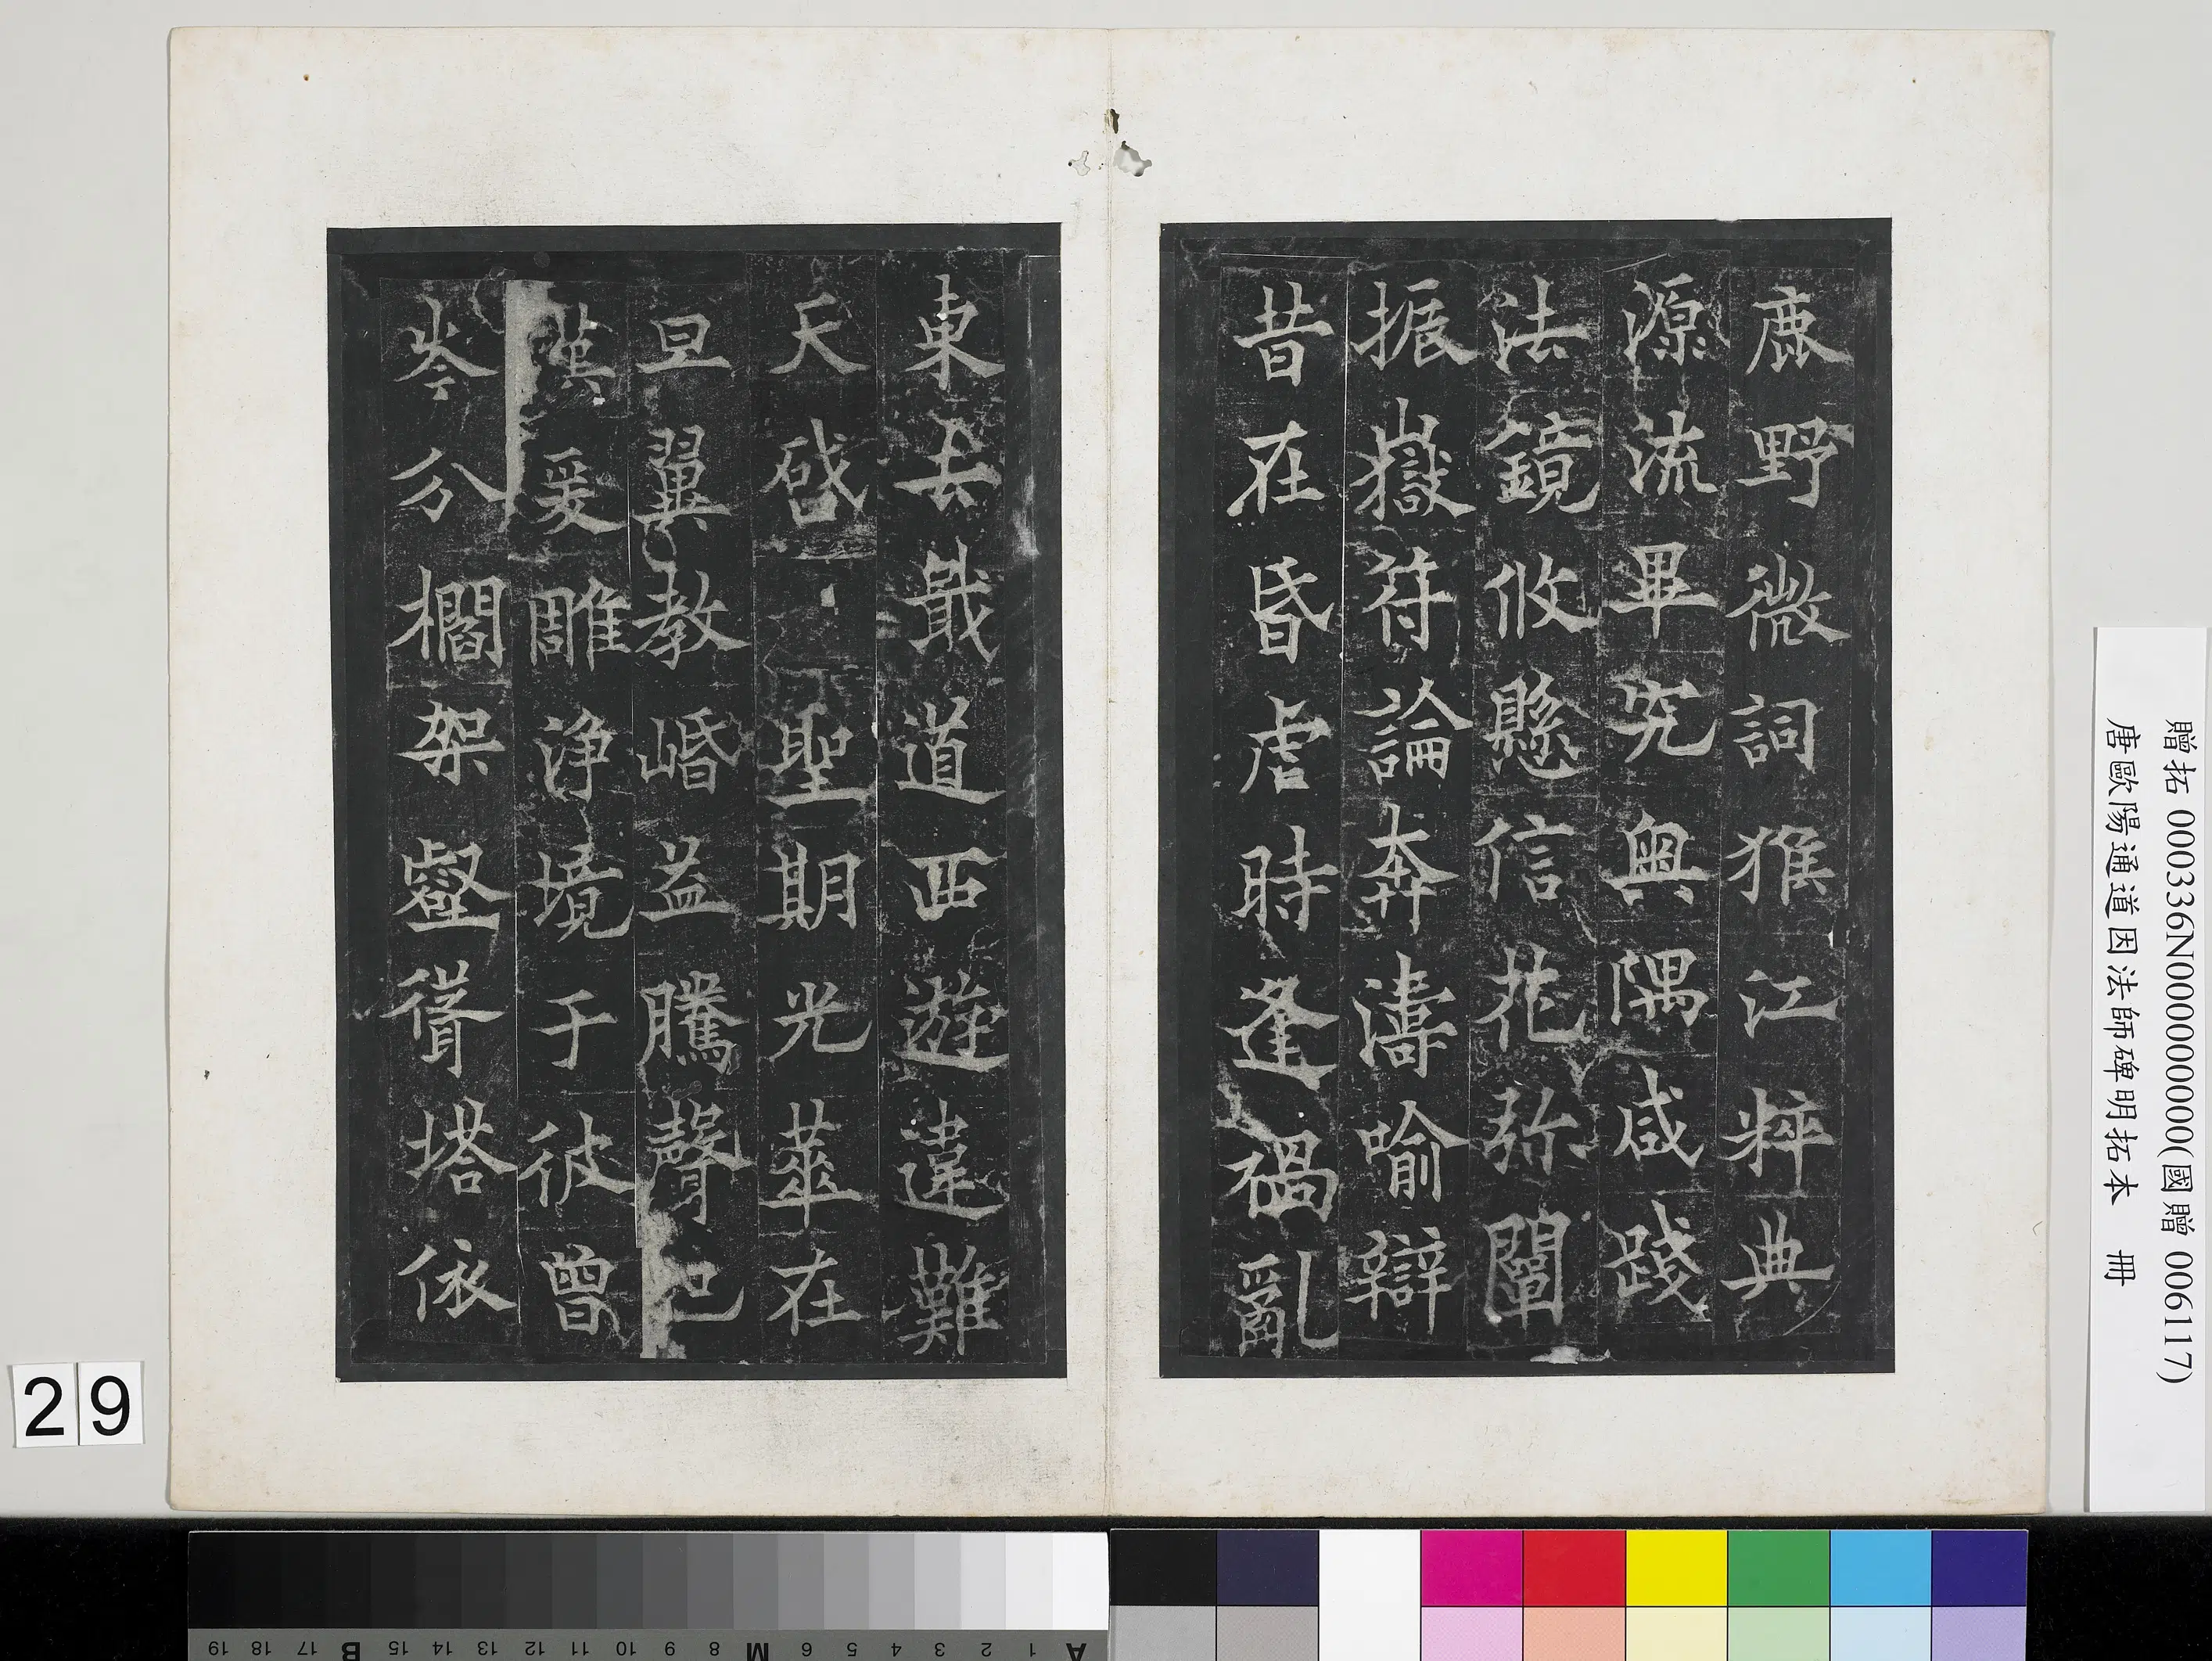 鹿野微詞猴江粹典
源流畢究奥隅咸踐
法鏡攸懸信花弥闡
振嶽符論奔濤喻辯
昔在昏虐時逢禍亂
東去戢道西遊違難
天啟聖期光華在
旦翼教㟭益騰聲已
漢爰雕淨境于彼曾
岑分櫩架壑聳塔依
贈拓 000336N000000000(國贈 006117)
唐歐陽通道因法師碑明拓本 冊
29
19 18 17 B 15 14 13 12 11 10 9 8 M 6 5 4 3 2 1 A